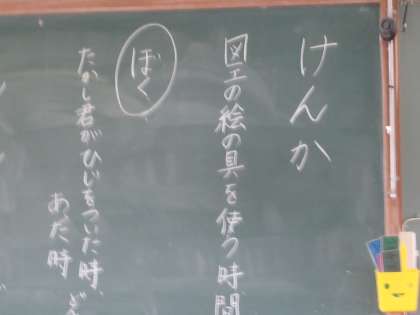 けんか
図工の絵の具を使う時間
ぼく
たかし君がひじをついた時、
あった時